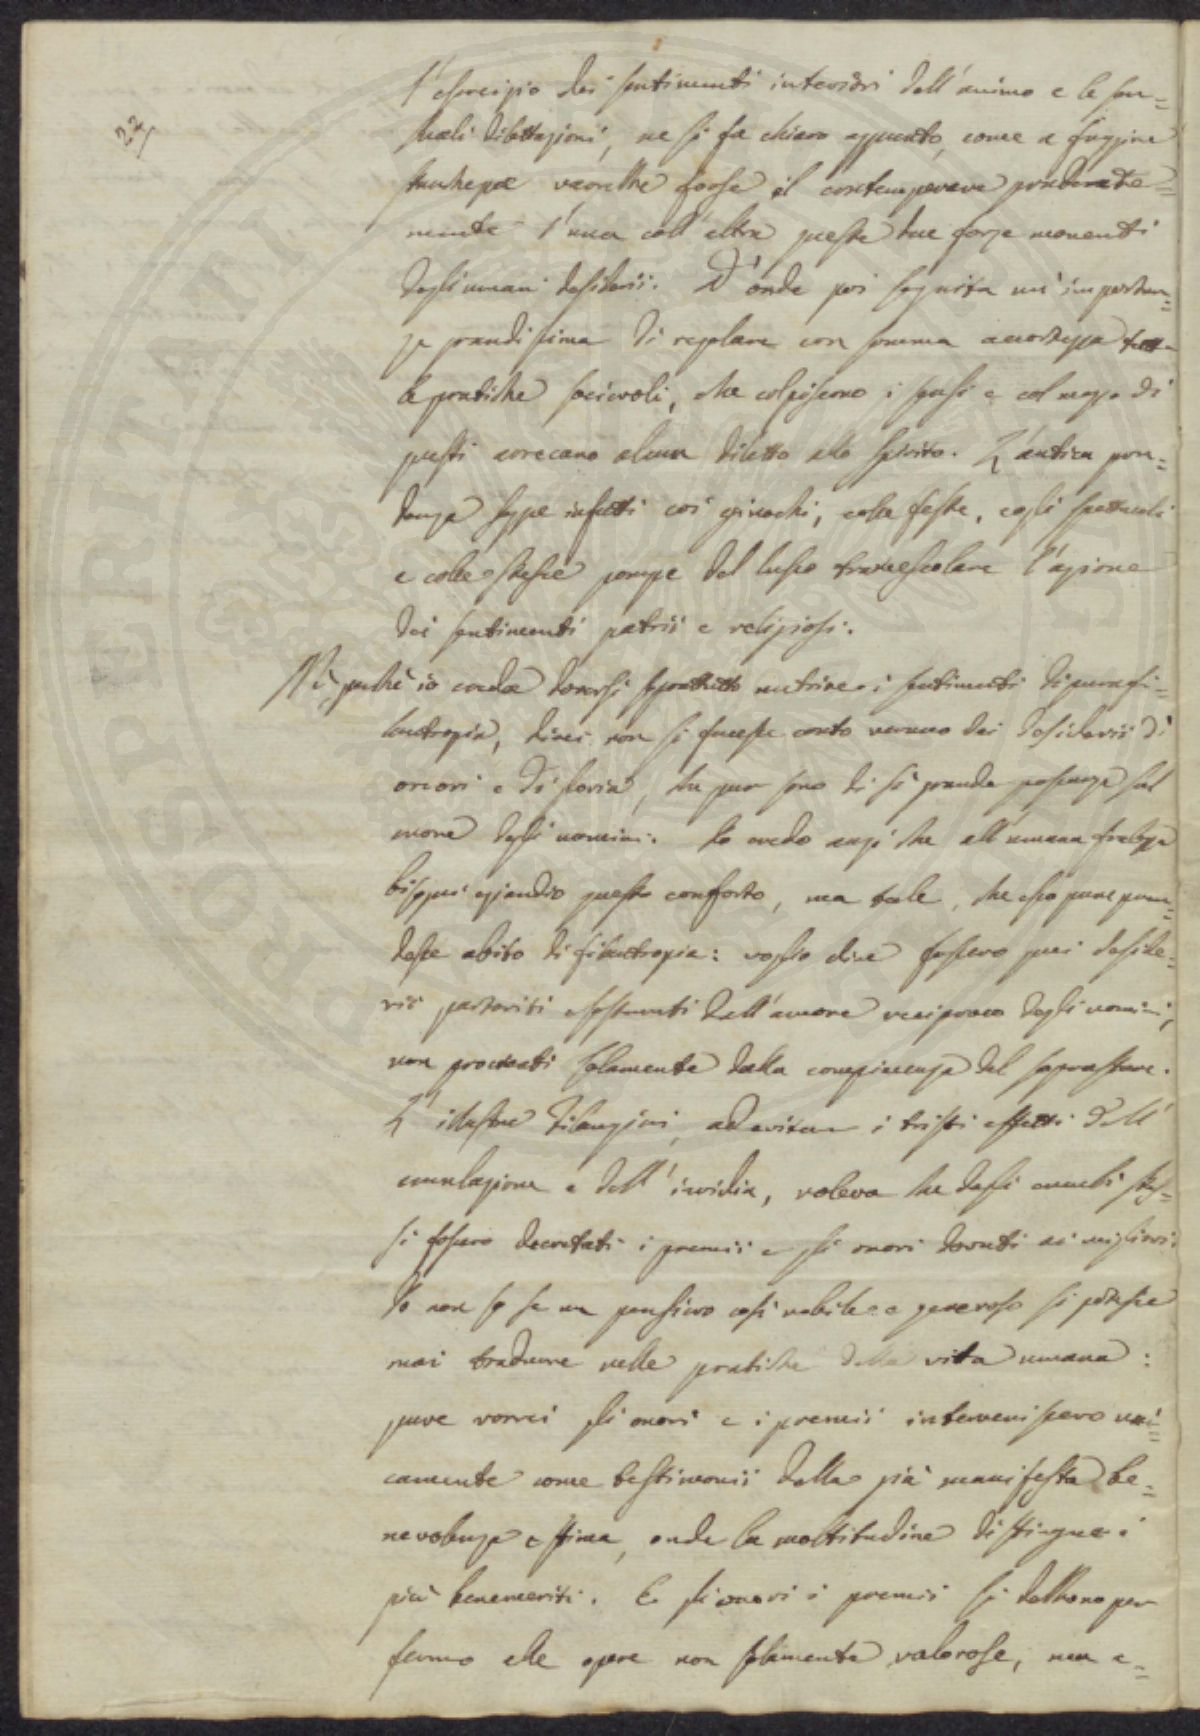 22/
l'esercizio dei sentimenti interiori dell'animo e le sen=
suali dilettazioni, ne si fa chiaro appunto, come a fuggire
forse il contemperare ponderata=
mente l'una coll'altra queste due forze moventi
degli umani desiderii. D'onde poi seguita un'importan=
za grandissima di regolare con somma accortezza tutte
le pratiche socievoli, che colpiscono i sensi e col mezzo di
questi arrecano alcun diletto allo spirito. L'antica pru=
denza seppe infatti coi giuochi, colle feste, cogli spettacoli
e colle stesse pompe del lusso l'azione
dei sentimenti patrii e religiosi.
Nè perchè io creda doversi soprattutto nutrire i sentimenti di pura fi=
lantropia, direi non si facesse conto veruno dei desiderii di
onori e di gloria, che pur sono di sì grande possanza sul
cuore degli uomini. Io credo anzi che all'umana fralezza
bisogni eziandio questo conforto, ma tale, che esso pure pren=
desse abito di filantropia: voglio dire fossero quei deside=
rii partoriti e sostenuti dall'amore reciproco degli uomini,
non procreati solamente dalla compiacenza del soprastare.
L'illustre Filangieri, ad evitare i tristi effetti dell'
emulazione e dell'invidia, voleva che dagli emuli stes=
si fossero decretati i premii e gli onori dovuti ai migliori.
Io non so se un pensiero così nobile e generoso si potesse
mai tradurre nelle pratiche della vita umana:
pure vorrei gli onori e i premii intervenissero uni=
camente come testimonii della più manifesta be=
nevolenza e stima, onde la moltitudine distingue i
più benemeriti. E gli onori i premii si debbono per
fermo alle opere non solamente valorose, ma e=